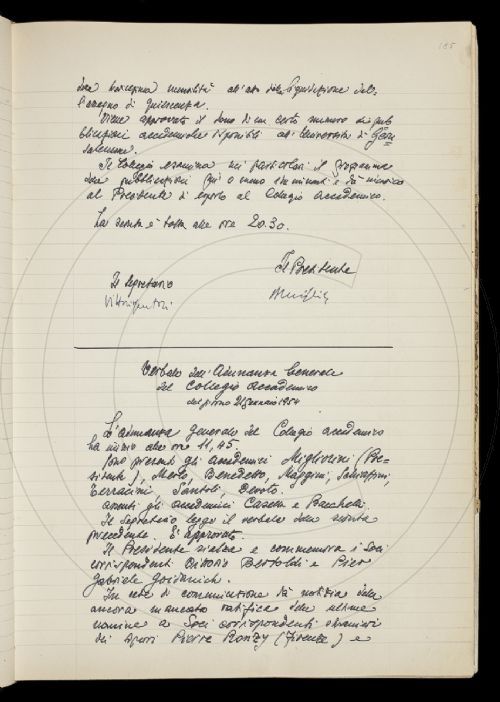 185
due tredicesima mensilità all'atto della liquidazione dell'
assegno di quiescenza.
Viene approvato il dono di un certo numero di pub
blicazioni accademiche disponibili all'Università di Geru=
salemme.
Il Collegio esamina nei particolari il programma
delle pubblicazioni più o meno imminenti e dà incarico
al Presidente di riferire al Collegio accademico.
La seduta è tolta alle ore 20.30.
Il Presidente
Il Segretario
Verbale dell'Adunanza Generale
del Collegio Accademico
del giorno 21 gennaio 1954
L'adunanza generale del Collegio accademico
ha inizio alle ore 11,45.
Sono presenti gli accademici Migliorini (Pre=
sidente), Merlo, Benedetto, Maggini, Schiaffini,
Terracini, Santoli, Devoto.
assenti gli accademici Casella e Bacchelli.
Il Segretario legge il verbale della seduta
precedente. È approvato.
Il Presidente rialza e commemora i Soci
corrispondenti Vittorio Bertoldi e Pier
Gabriele Goidànich.
In sede di comunicazione dà notizia della
ancora mancata ratifica delle ultime
nomine a Soci corrispondenti stranieri
dei signori Pierre Ronzy (Firenze) e